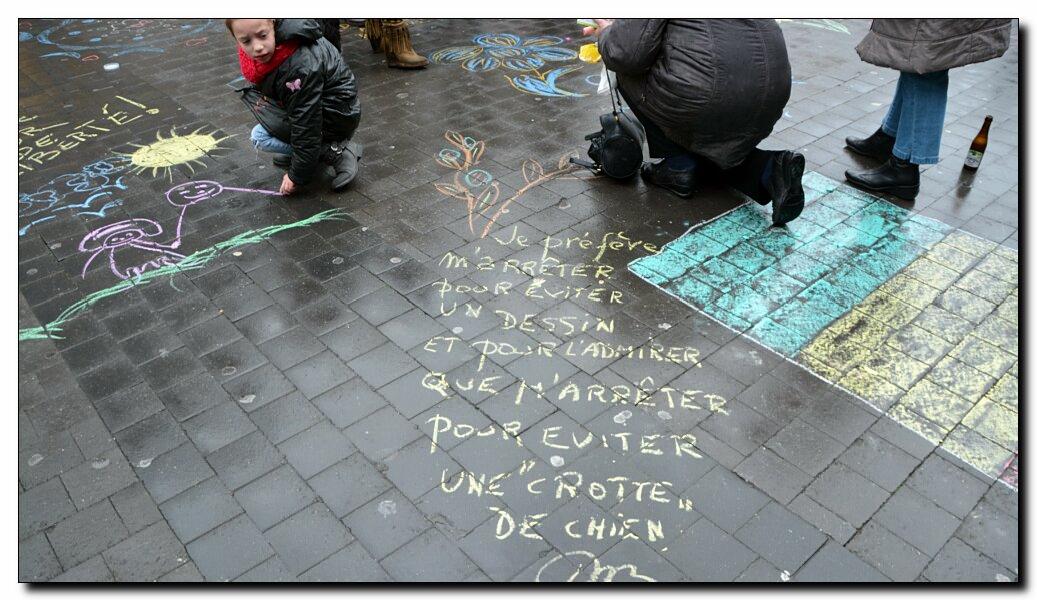 BERTÉ!
Je préfère
m'ARRÊTER
POUR ÉVITER
UN DESSIN
ET POUR L'ADMIRER
QUE M'ARRÊTER
POUR EVITER
UNE "CROTTE„
DE CHIEN